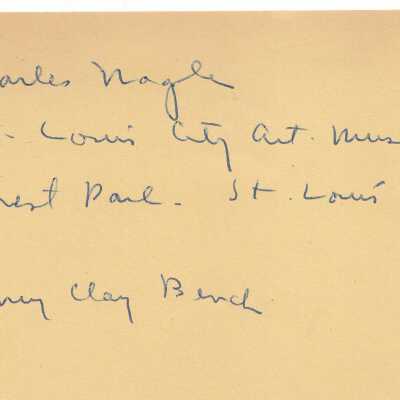 arles Nagle
- Louis City Art. Mus
rest Park - St. Louis
nry Clay Bench